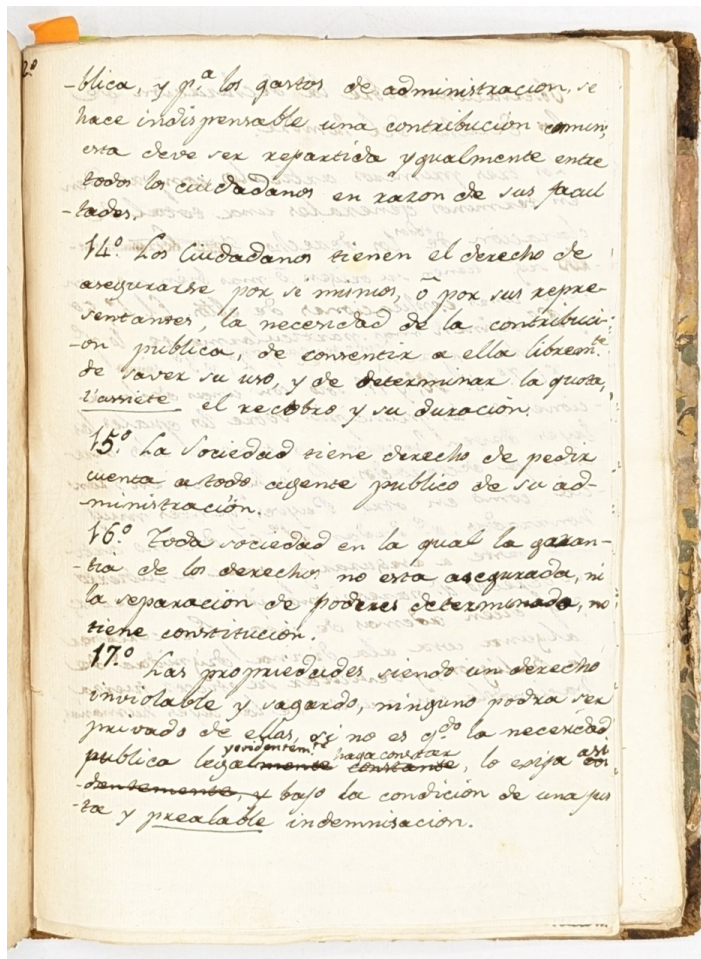 2º
-blica, y p.ª los gastos de administracion, se
hace indispensable una contribucion comun,
esta deve ser repartida ygualmente entre
todos los ciudadanos en razon de sus facul
-tades.
14.º Los Ciudadanos tienen el derecho de
asegurarse por se mismos, ō por sus repre-
sentantes, la necesidad de la contribuci-
-on publica, de consentir a ella librem.te
de saver su uso, y de determinar la quota,
l'assiete el recobro y su duración.
15.º La Sociedad tiene derecho de pedir
cuenta a todo agente publico de su ad-
-ministración.
16.º Toda sociedad en la qual la garan-
-tia de los derechos no esta asegurada, ni
la separacion de poderes determinada, no
tiene constitución.
17.º Las propriedades siendo un derecho
inviolable y sagardo, ninguno podra ser
privado de ellas, si no es q.do la necesidad
y evidentem.te haga constar
publica legalmente constante, lo exija asi
-dentemente, y bajo la condición de una jus
-ta y prealable indemnisación.